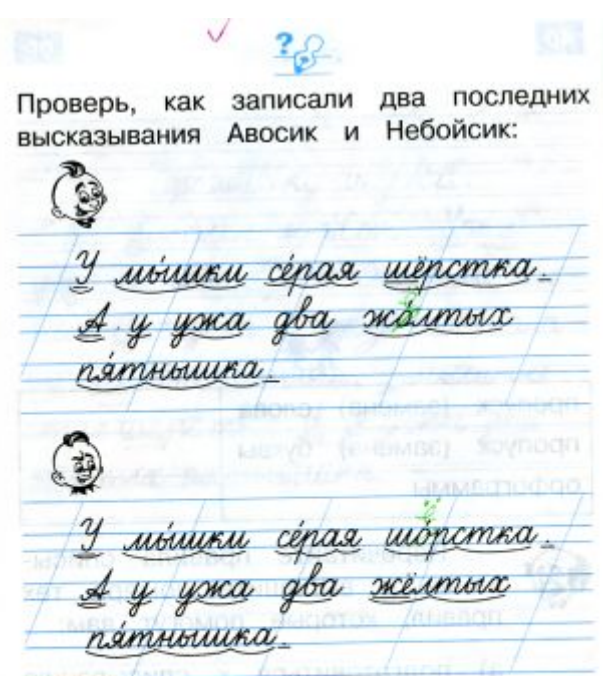 Проверь, как записали два последних
высказывания Авосик и Небойсик:
У мы́шки се́рая шёрстка.
А у ужа два жо́лтых
пя́тнышка.
У мы́шки се́рая шо́рстка.
А у ужа два жёлтых
пя́тнышка.